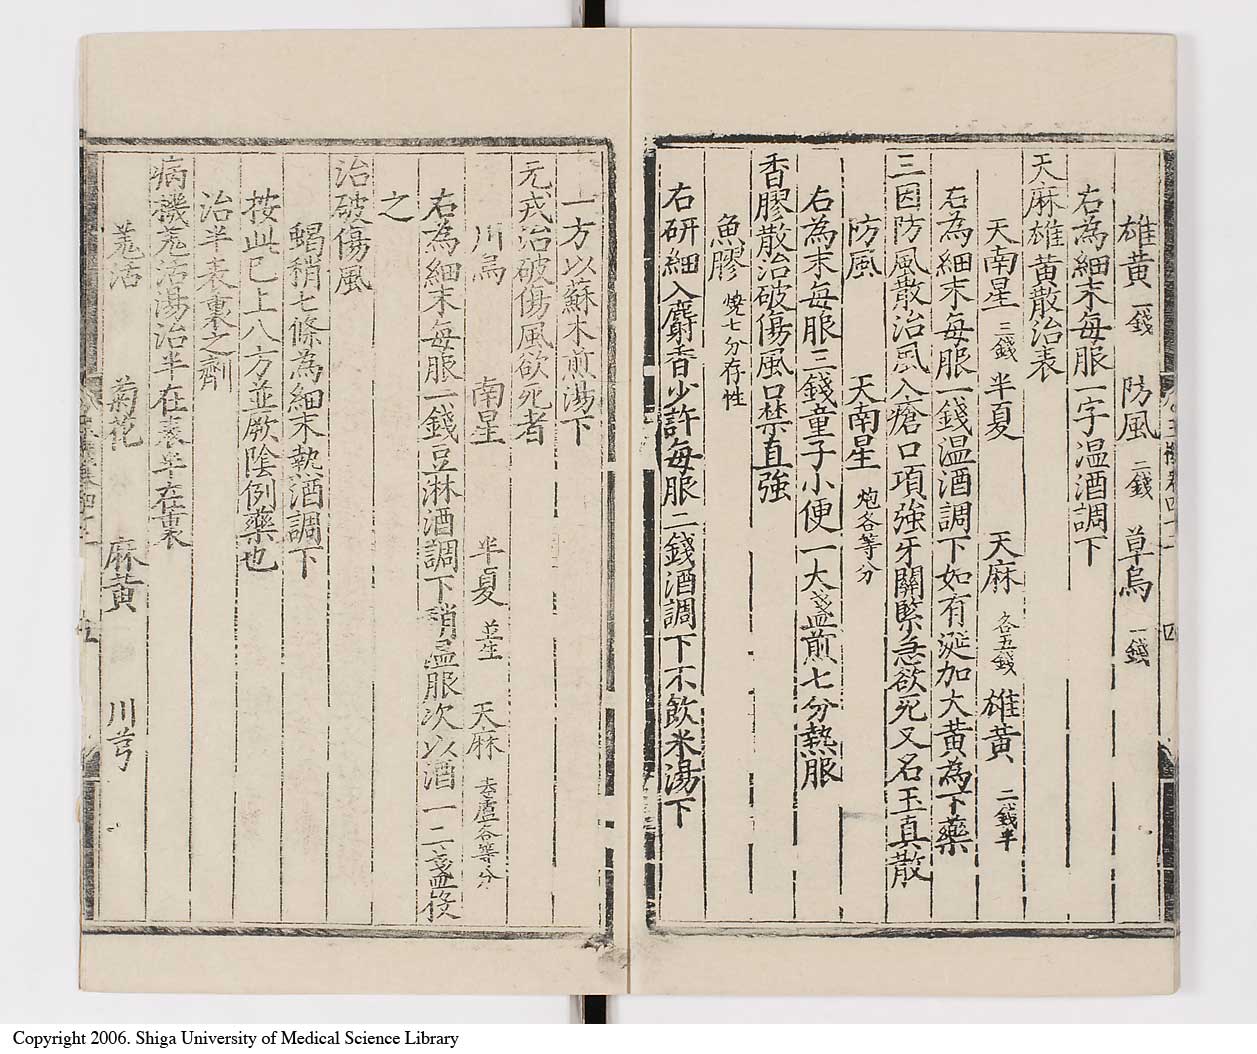 雄黃 一錢 防風 二錢 草烏 一錢
右為細末每服一字温酒調下
天麻雄黃散治表
天南星 三錢 半夏 天麻 各五錢 雄黃 二錢半
右為細末每服一錢温酒調下如有涎加大黃為下藥
三因防風散治風入瘡口項強牙關緊急欲死又名玉真散
防風 天南星 炮各等分
右為末每服三錢童子小便一大盞煎七分熱服
香膠散治破傷風口禁直強
魚膠 燒七分存性
右研細入麝香少許每服二錢酒調下不飲米湯下
一方以蘇木煎湯下
元戎治破傷風欲死者
川烏 南星 半夏 並生 天麻 去蘆各等分
右為細末每服一錢豆淋酒調下稍温服次以酒一二盞投
之
治破傷風
蝎稍七條為細末熱酒調下
按此已上八方並厥陰例藥也
治半表裏之劑
病機羗活湯治半在表半在裏
羗活 菊花 麻黃 川芎
四
五
Copyright 2006. Shiga University of Medical Science Library